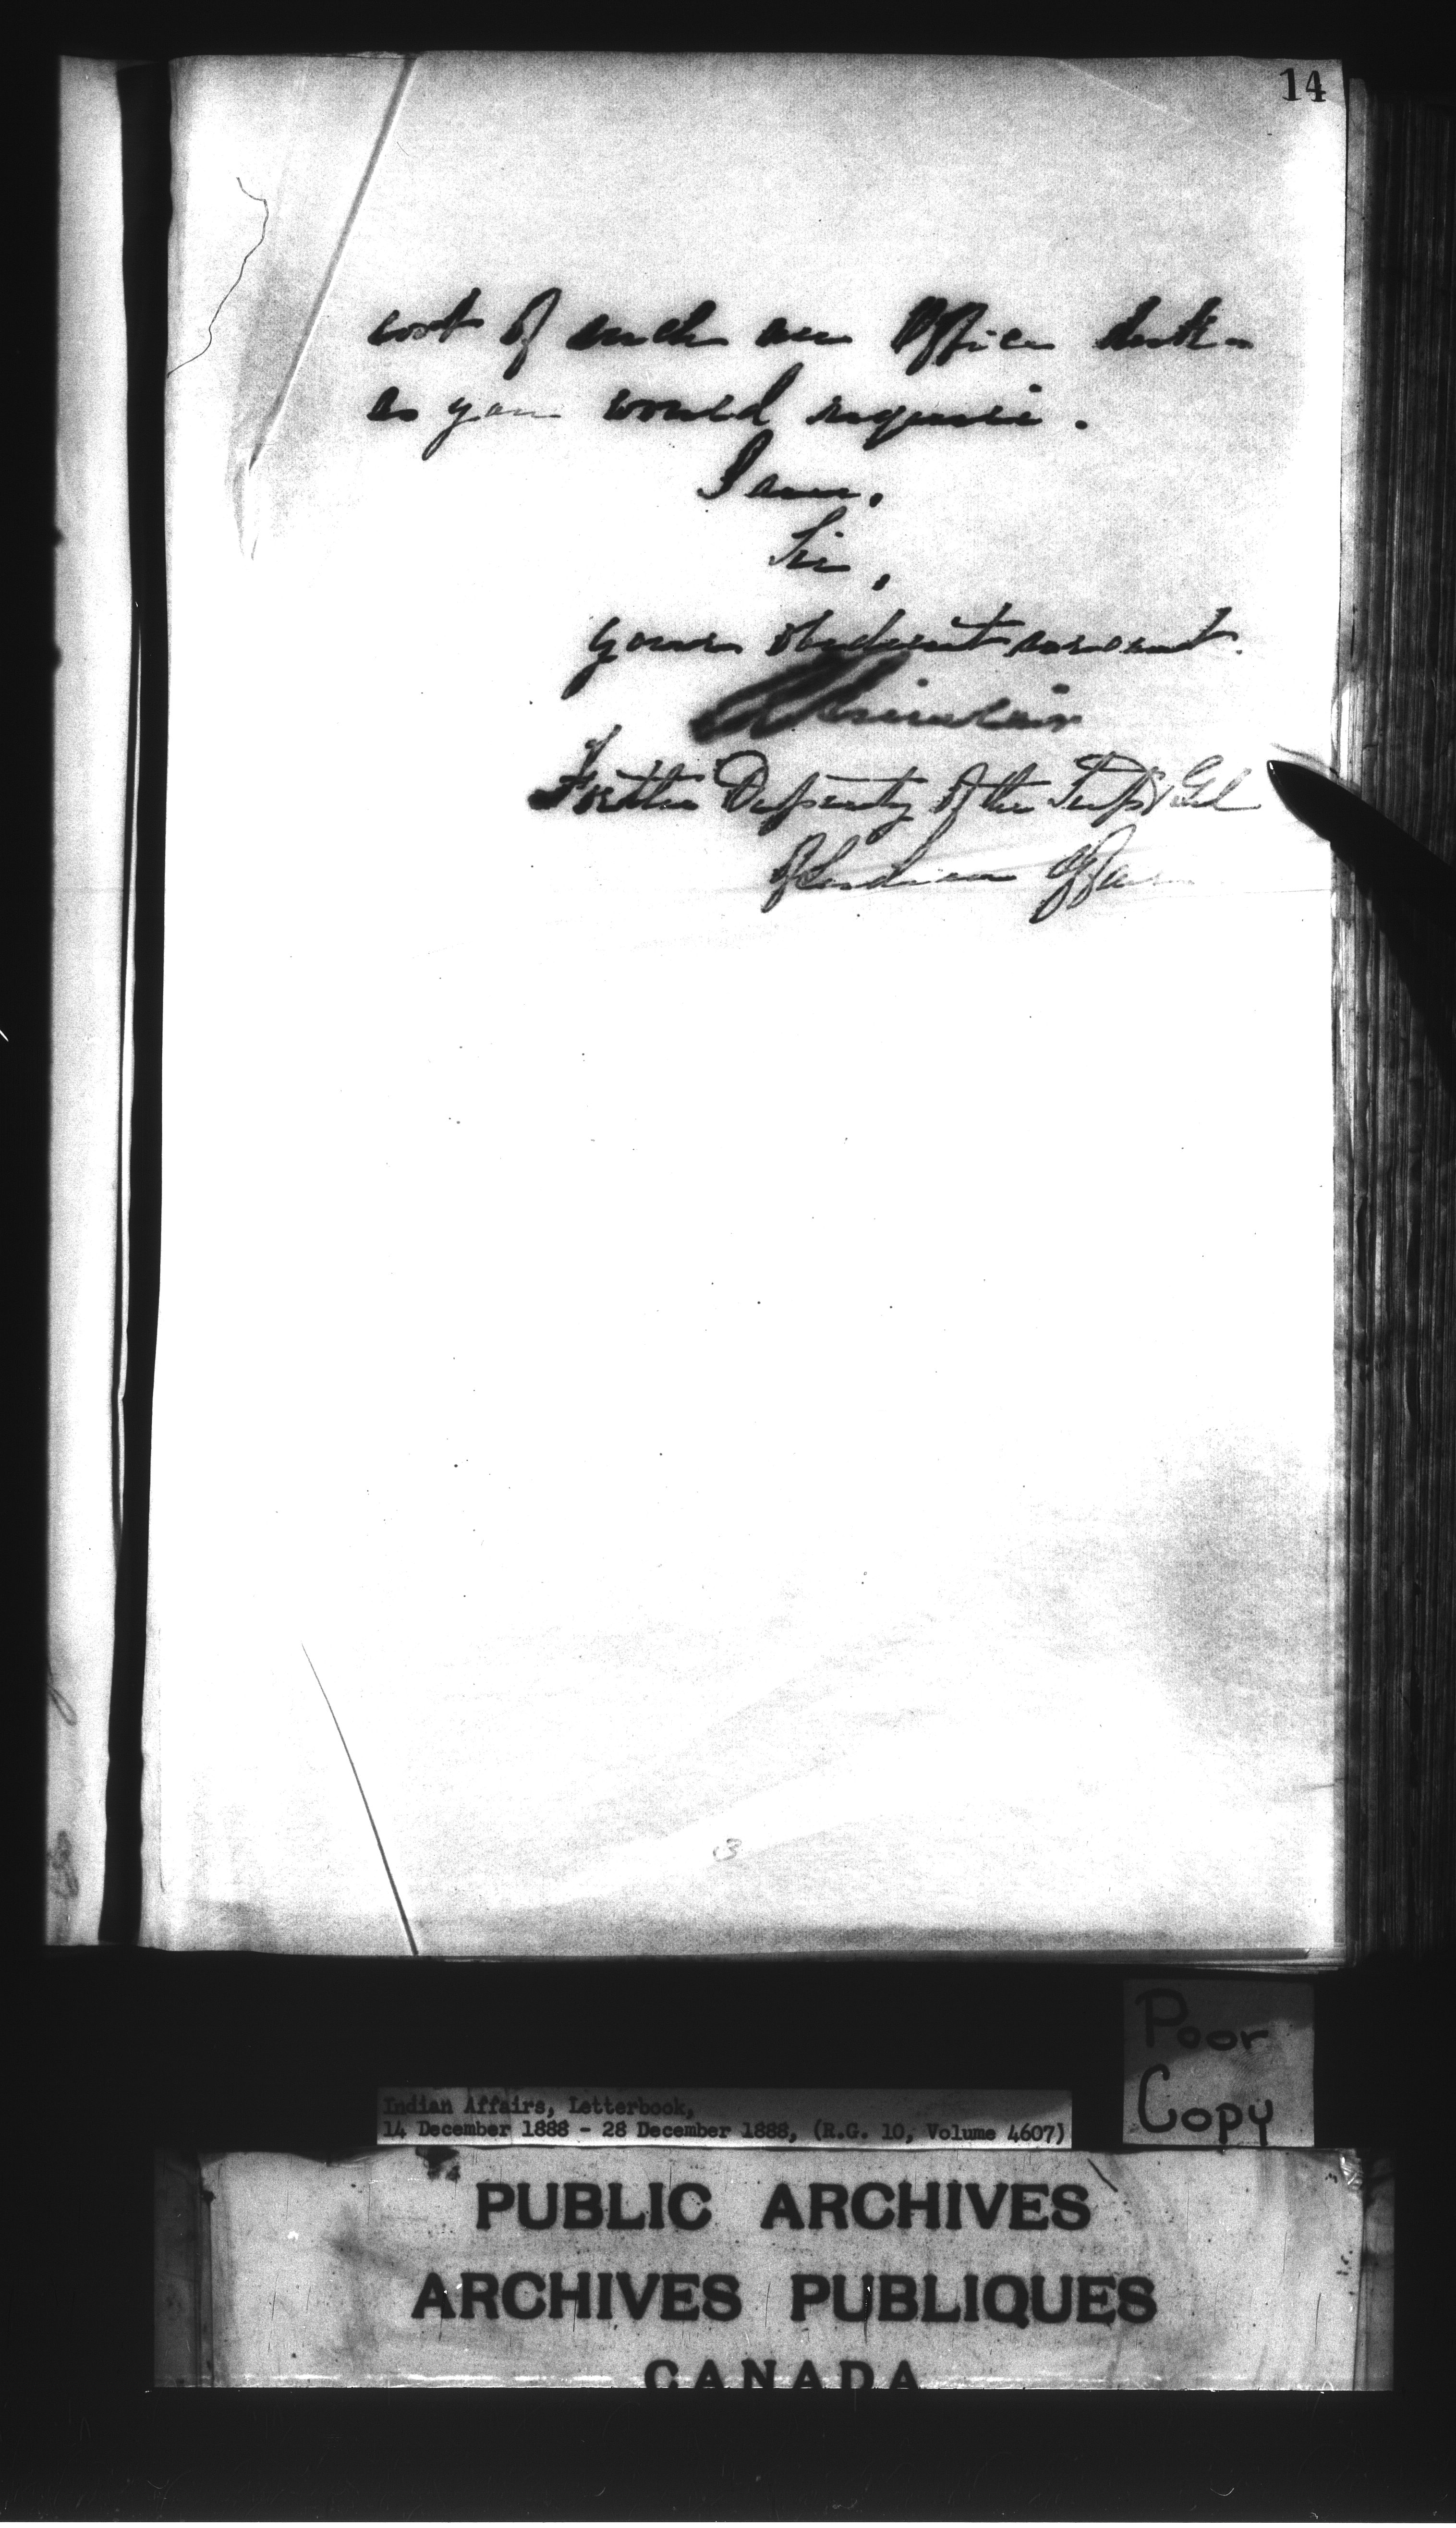 14
cost of such an Office desk
as you would require.
I am,
Sir,
Your obedient servant.
R Sinclair
For the Deputy of the Supt Genl
of Indian Affairs
3
Poor
Copy
Indian Affairs, Letterbook,
14 December 1888 - 28 December 1888, (R.G. 10, Volume 4607)
PUBLIC ARCHIVES
ARCHIVES PUBLIQUES
CANADA